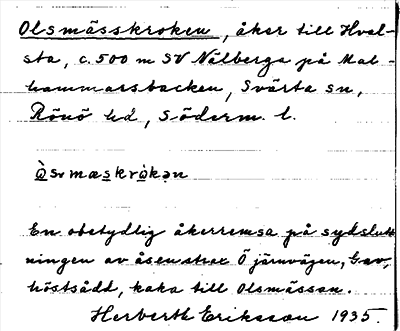 Olsmässkroken, åker till Hval-
sta, c. 500 m SV Nälberga på Mal-
hammarsbacken, Svärta sn,
Rönö hd, Söderm. l.
En obetydlig åkerremsa på sydslutt
ningen av åsen strax Ö järnvägen,
höstsådd, kaka till Olsmässan.
Herberth Eriksson 1935.